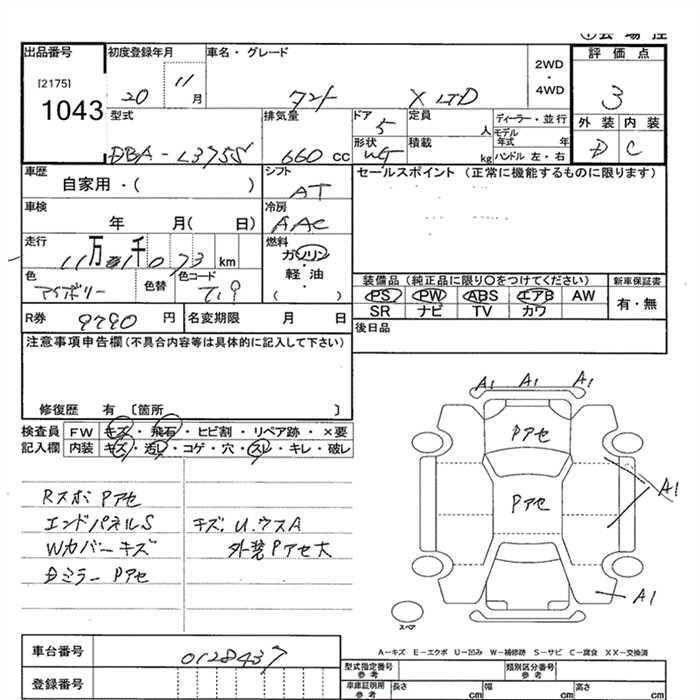 ①会場控
出品番号
[2175]
1043
初度登録年月
20 11月
車名・グレード
タント X LTD
2WD
・
4WD
評価点
3
型式
DBA - L375S
排気量
660 cc
ドア
5
定員
人
ディーラー・並行
モデル年式 年
外装 内装
D C
形状
積載
kg
ハンドル 左・右
車歴
自家用・( )
シフト
AT
セールスポイント (正常に機能するものに限ります)
車検
年 月( 日)
冷房
AAC
走行
11万 千 073 km
燃料
ガソリン
・
軽油
( )
色
アイボリー
色替
色コード
T19
装備品 (純正品に限り○をつけてください)
新車保証書
PS PW ABS エアB AW
有・無
SR ナビ TV カワ
R券 9790 円
名変期限 月 日
後日品
注意事項申告欄 (不具合内容等は具体的に記入して下さい)
修復歴 有 〔箇所 〕
検査員 FW キズ・飛石・ヒビ割・リペア跡・×要
記入欄 内装 キズ・汚レ・コゲ・穴・スレ・キレ・破レ
A1 A1 A1
Pアセ
Pアセ
A1
A1
Rスポ Pアセ
エンドパネルS
キズ、U、ウスA
Wカバーキズ
外装Pアセ大
Dミラー Pアセ
スペア
A-キズ E-エクボ U-凹み W-補修跡 S-サビ C-腐食 XX-交換済
車台番号
0128437
登録番号
型式指定番号 参考
類別区分番号 参考
車庫証明用 参考
長さ cm
幅 cm
高さ cm